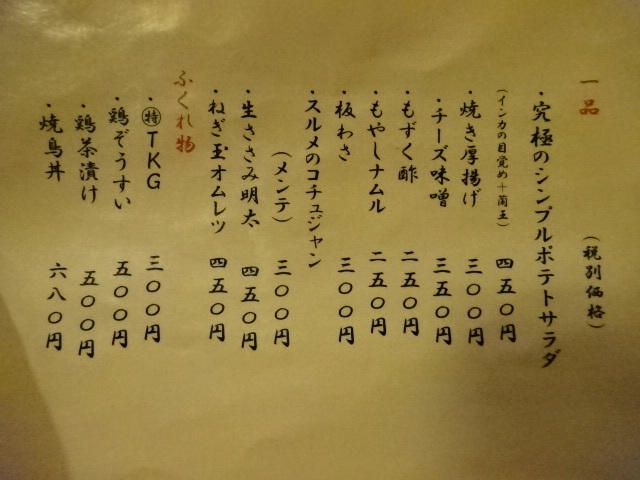 一品
（税別価格）
・究極のシンプルポテトサラダ
（インカの目覚め＋蘭王）
四五〇円
・焼き厚揚げ 三〇〇円
・チーズ味噌 三五〇円
・もずく酢 二五〇円
・もやしナムル 二五〇円
・板わさ 三〇〇円
・スルメのコチュジャン
（メンテ） 三〇〇円
・生ささみ明太 四五〇円
・ねぎ玉オムレツ 四五〇円
ふくれ物
・㊕TKG 三〇〇円
・鶏ぞうすい 五〇〇円
・鶏茶漬け 五〇〇円
・焼鳥丼 六八〇円